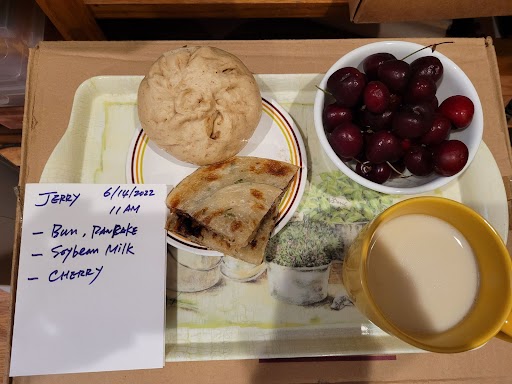 JERRY 6/14/2022
11 AM
- Bun, PANCAKE
- Soybean Milk
- CHERRY